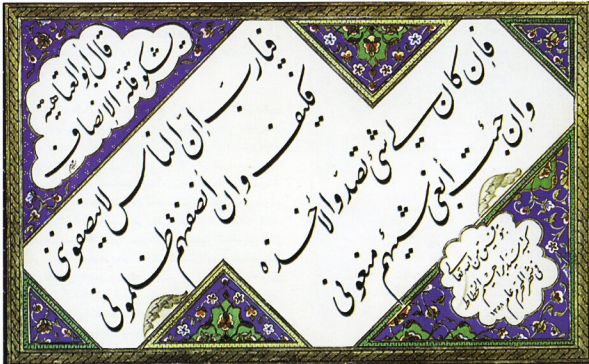 قال أبو العتاهية
يشكو قلة الإنصاف
فيارب إن الناس لا ينصفونني
فكيف وإن أنصفتهم ظلموني
فإن كان لي شئ تصدوا لأخذه
وإن جئت أبغي شيئهم منعوني